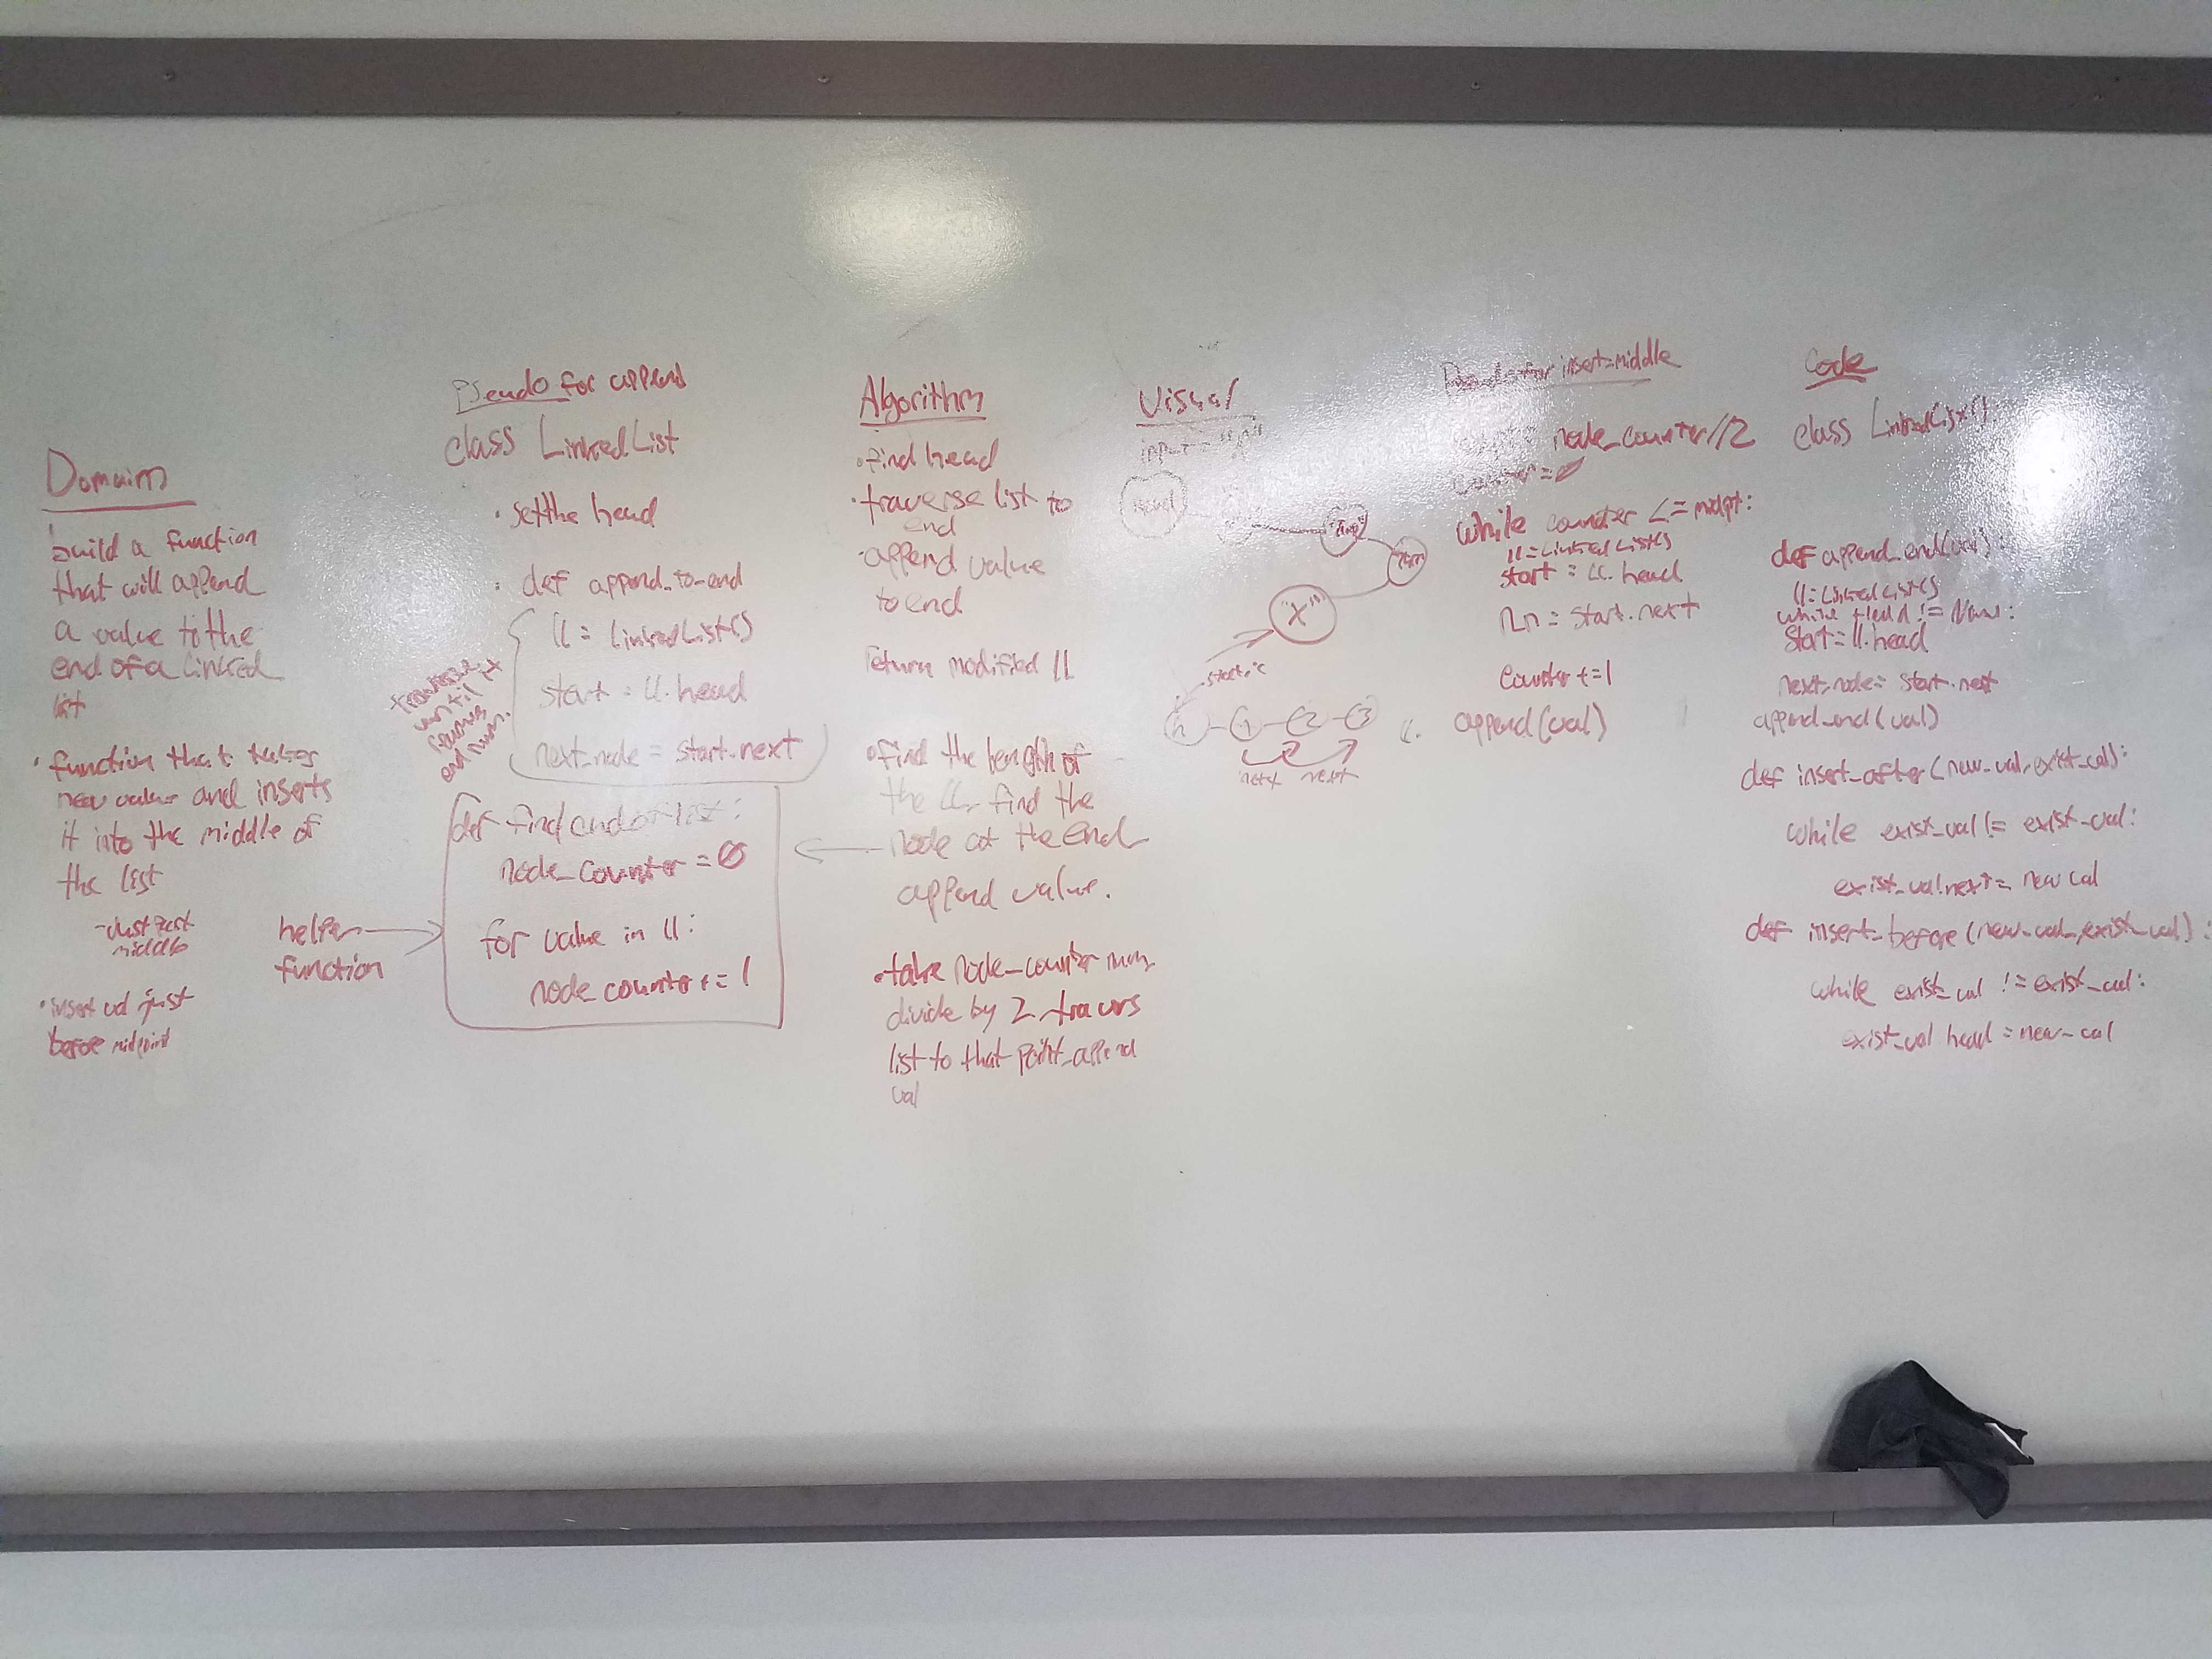 Domain
build a function
that will append
a value to the
end of a linked
list
• function that takes
new value and inserts
it into the middle of
the list
- Just past
middle
• insert val just
before midpoint
helper
function
Pseudo for append
class LinkedList
• set the head
• def append_to_end
ll = LinkedList()
start = ll.head
next_node = start.next
traverse
until it
end num.
def find end of list:
node_counter = 0
for value in ll:
node_counter += 1
Algorithm
• find head
• traverse list to
end
• append value
to end
return modified ll
• find the length of
the ll, find the
node at the end
append value.
• take node_counter num
divide by 2 travers
list to that point_append
val
Visual
input =
Head
"X"
start
h 1 2 3
next next
Pseudo for insert_middle
node_counter//2
counter = 0
while counter <= midpt:
ll = LinkedList()
start = ll.head
= start.next
counter += 1
append(val)
Code
class LinkedList():
def append_end(val):
ll = LinkedList()
while head != None:
start = ll.head
next_node = start.next
append_end(val)
def insert_after(new_val, exist_val):
while exist_val != exist_val:
exist_val.next = new val
def insert_before(new_val, exist_val):
while exist_val != exist_val:
exist_val head = new_val